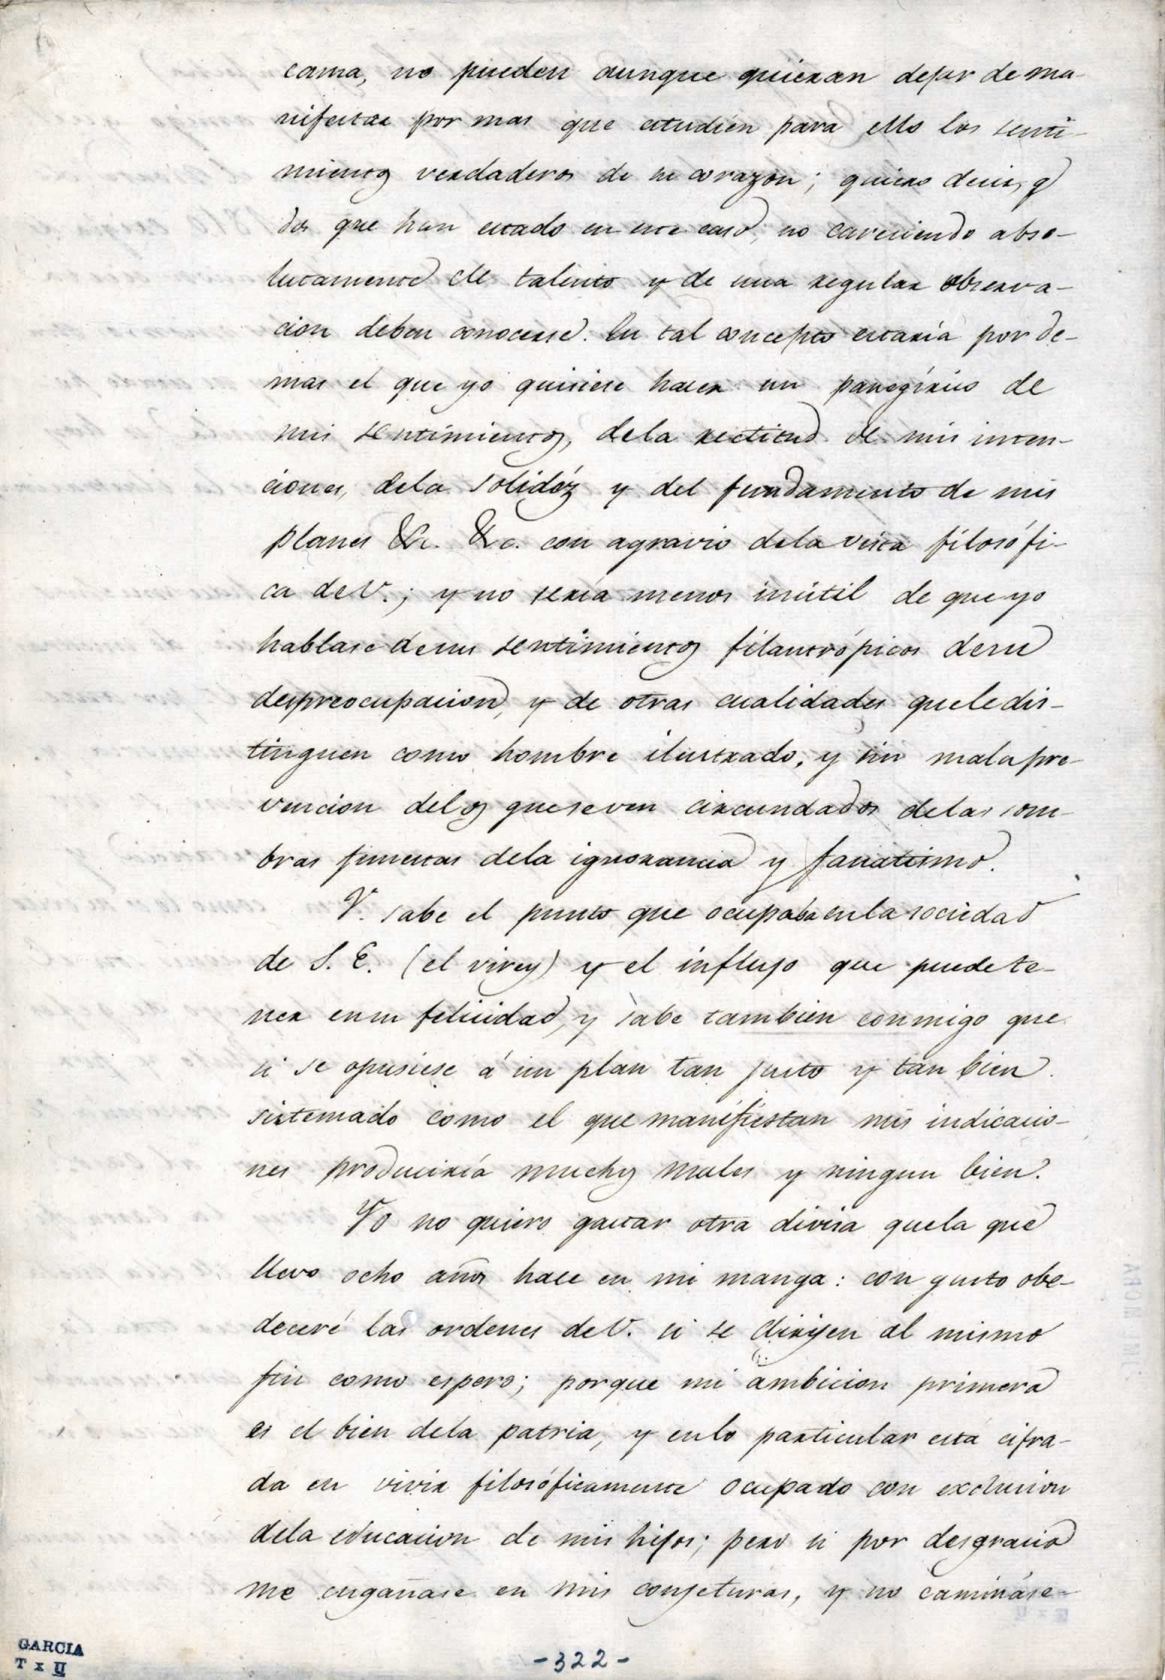 cama, no pueden aunque quieran dejar de ma-
nifestar por mas que estudien para ello los senti-
mientos verdaderos de su corazon; quiero decir, q
dos que han estado en este caso, no careciendo abso-
lutamente de talento y de una regular observa-
cion deben conocerse. En tal concepto estaría por de-
mas el que yo quisiese hacer un panegírico de
mis sentimientos, dela rectitud de mis inten-
ciones, dela solidéz y del fundamento de mis
planes &c. &c. con agravio dela vista filosófi-
ca de V.; y no sería menos inútil de que yo
hablase desus sentimientos filantrópicos desu
despreocupacion, y de otras cualidades quele dis-
tinguen como hombre ilustrado, y sin mala pre-
vencion delos queseven circundados delas som-
bras funestas dela ignorancia y fanatismo.
V. sabe el punto que ocupaba enla sociedad
de S. E. (el virey) y el influjo que puede te-
ner ensu felicidad, y sabe tambien conmigo que
si se opusiese á un plan tan justo y tan bien
sistemado como el que manifiestan mis indicacio-
nes produciría muchos males y ningun bien.
Yo no quiero gastar otra divisa quela que
llevo ocho años hace en mi manga: con gusto obe-
deceré las ordenes de V. si se dirijen al mismo
fin como espero; porque mi ambicion primera
es el bien dela patria, y enlo particular está cifra-
da en vivir filosóficamente ocupado con exclusion
dela educacion de mis hijos; pero si por desgracia
me engañase en mis conjeturas, y no camináse-
-322-
GARCIA
T x II